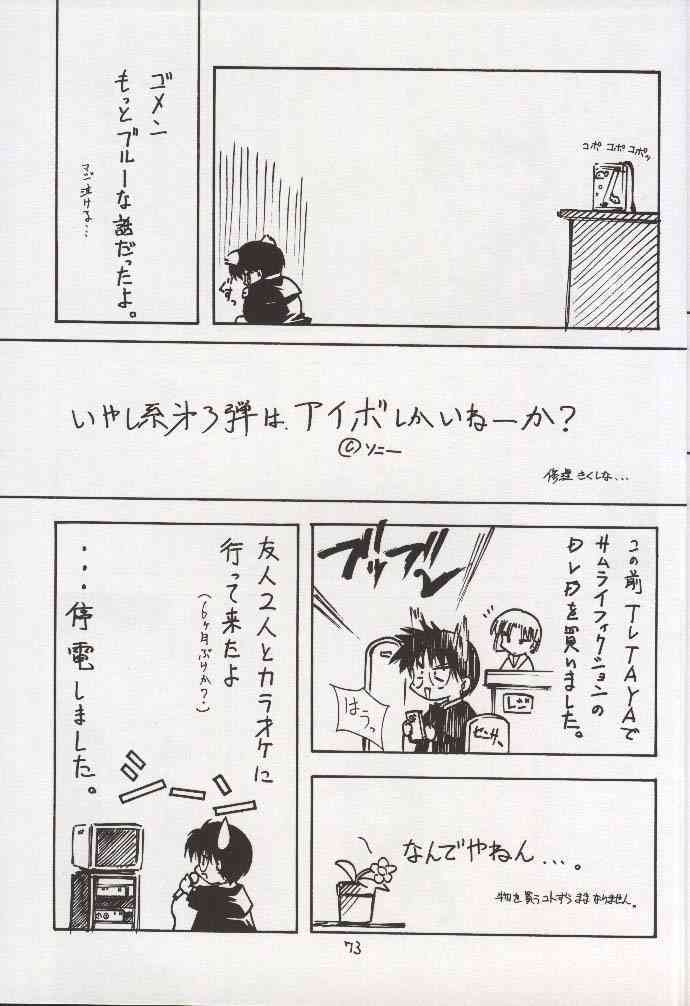 コポ コポ コポッ
ぐすっ
ゴメン
もっとブルーな話だったよ。
マジ泣ける…
いやし系第3弾は、アイボしかいねーか?
©ソニー
この前TSUTAYAで
サムライフィクションの
DVDを買いました。
ブッブー
レジ
はうっ
センサー
なんでやねん…。
物を買うコトすらままなりません。
友人2人とカラオケに
行って来たよ
(6ヶ月ぶりか?)
…停電しました。
73